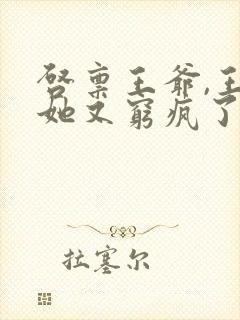 启禀王爷,王
她又窮疯了
拉塞尔